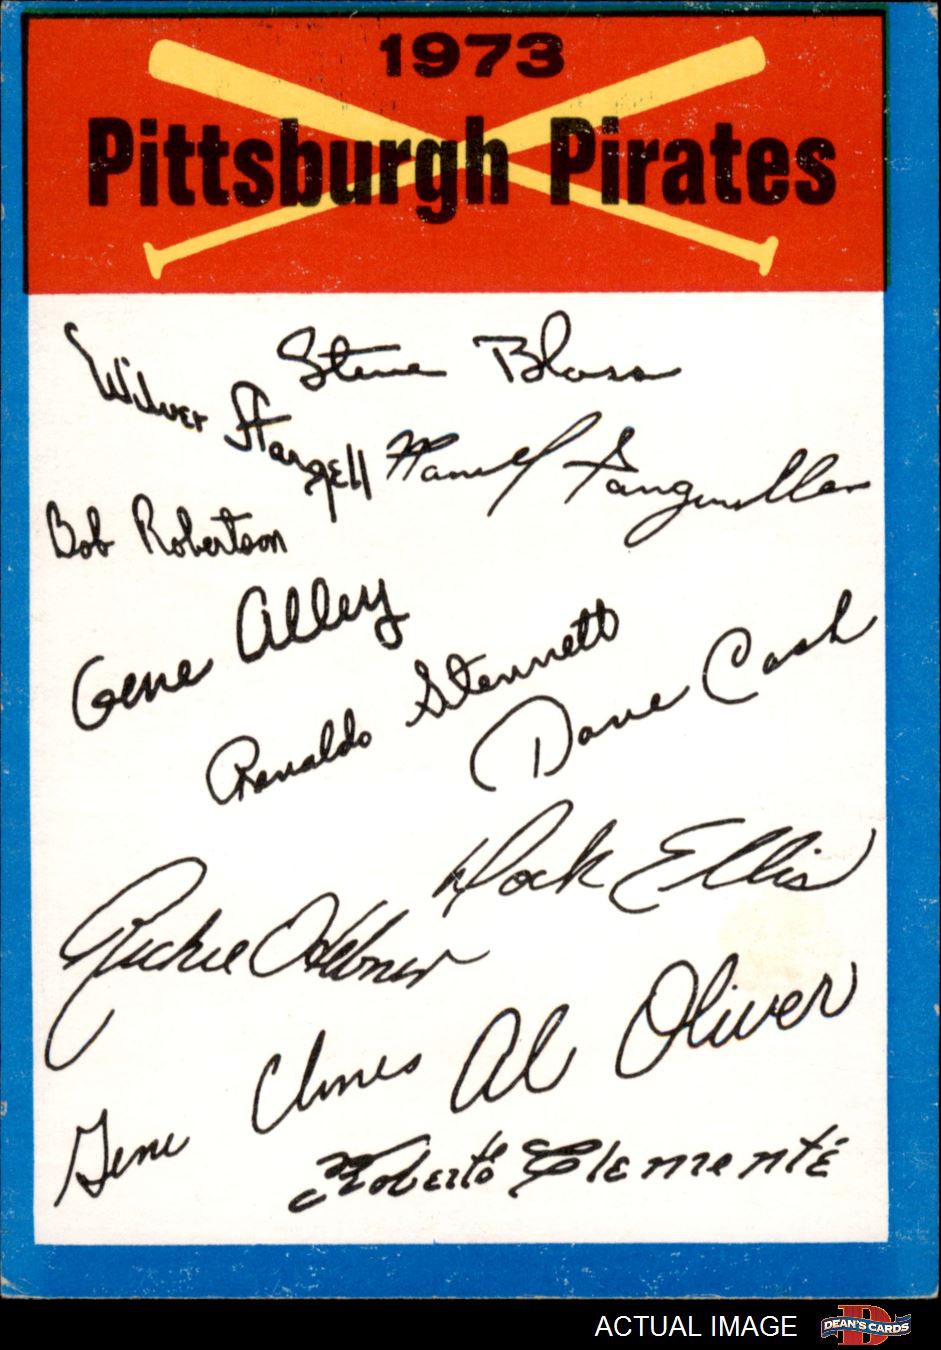 1973
Pittsburgh Pirates
Steve Blass
Wilver Stargell
Manuel Sanguillen
Bob Robertson
Gene Alley
Renaldo Stennett
Dave Cash
Dock Ellis
Richie Hebner
Gene Clines
Al Oliver
Roberto Clemente
ACTUAL IMAGE
DEAN'S CARDS